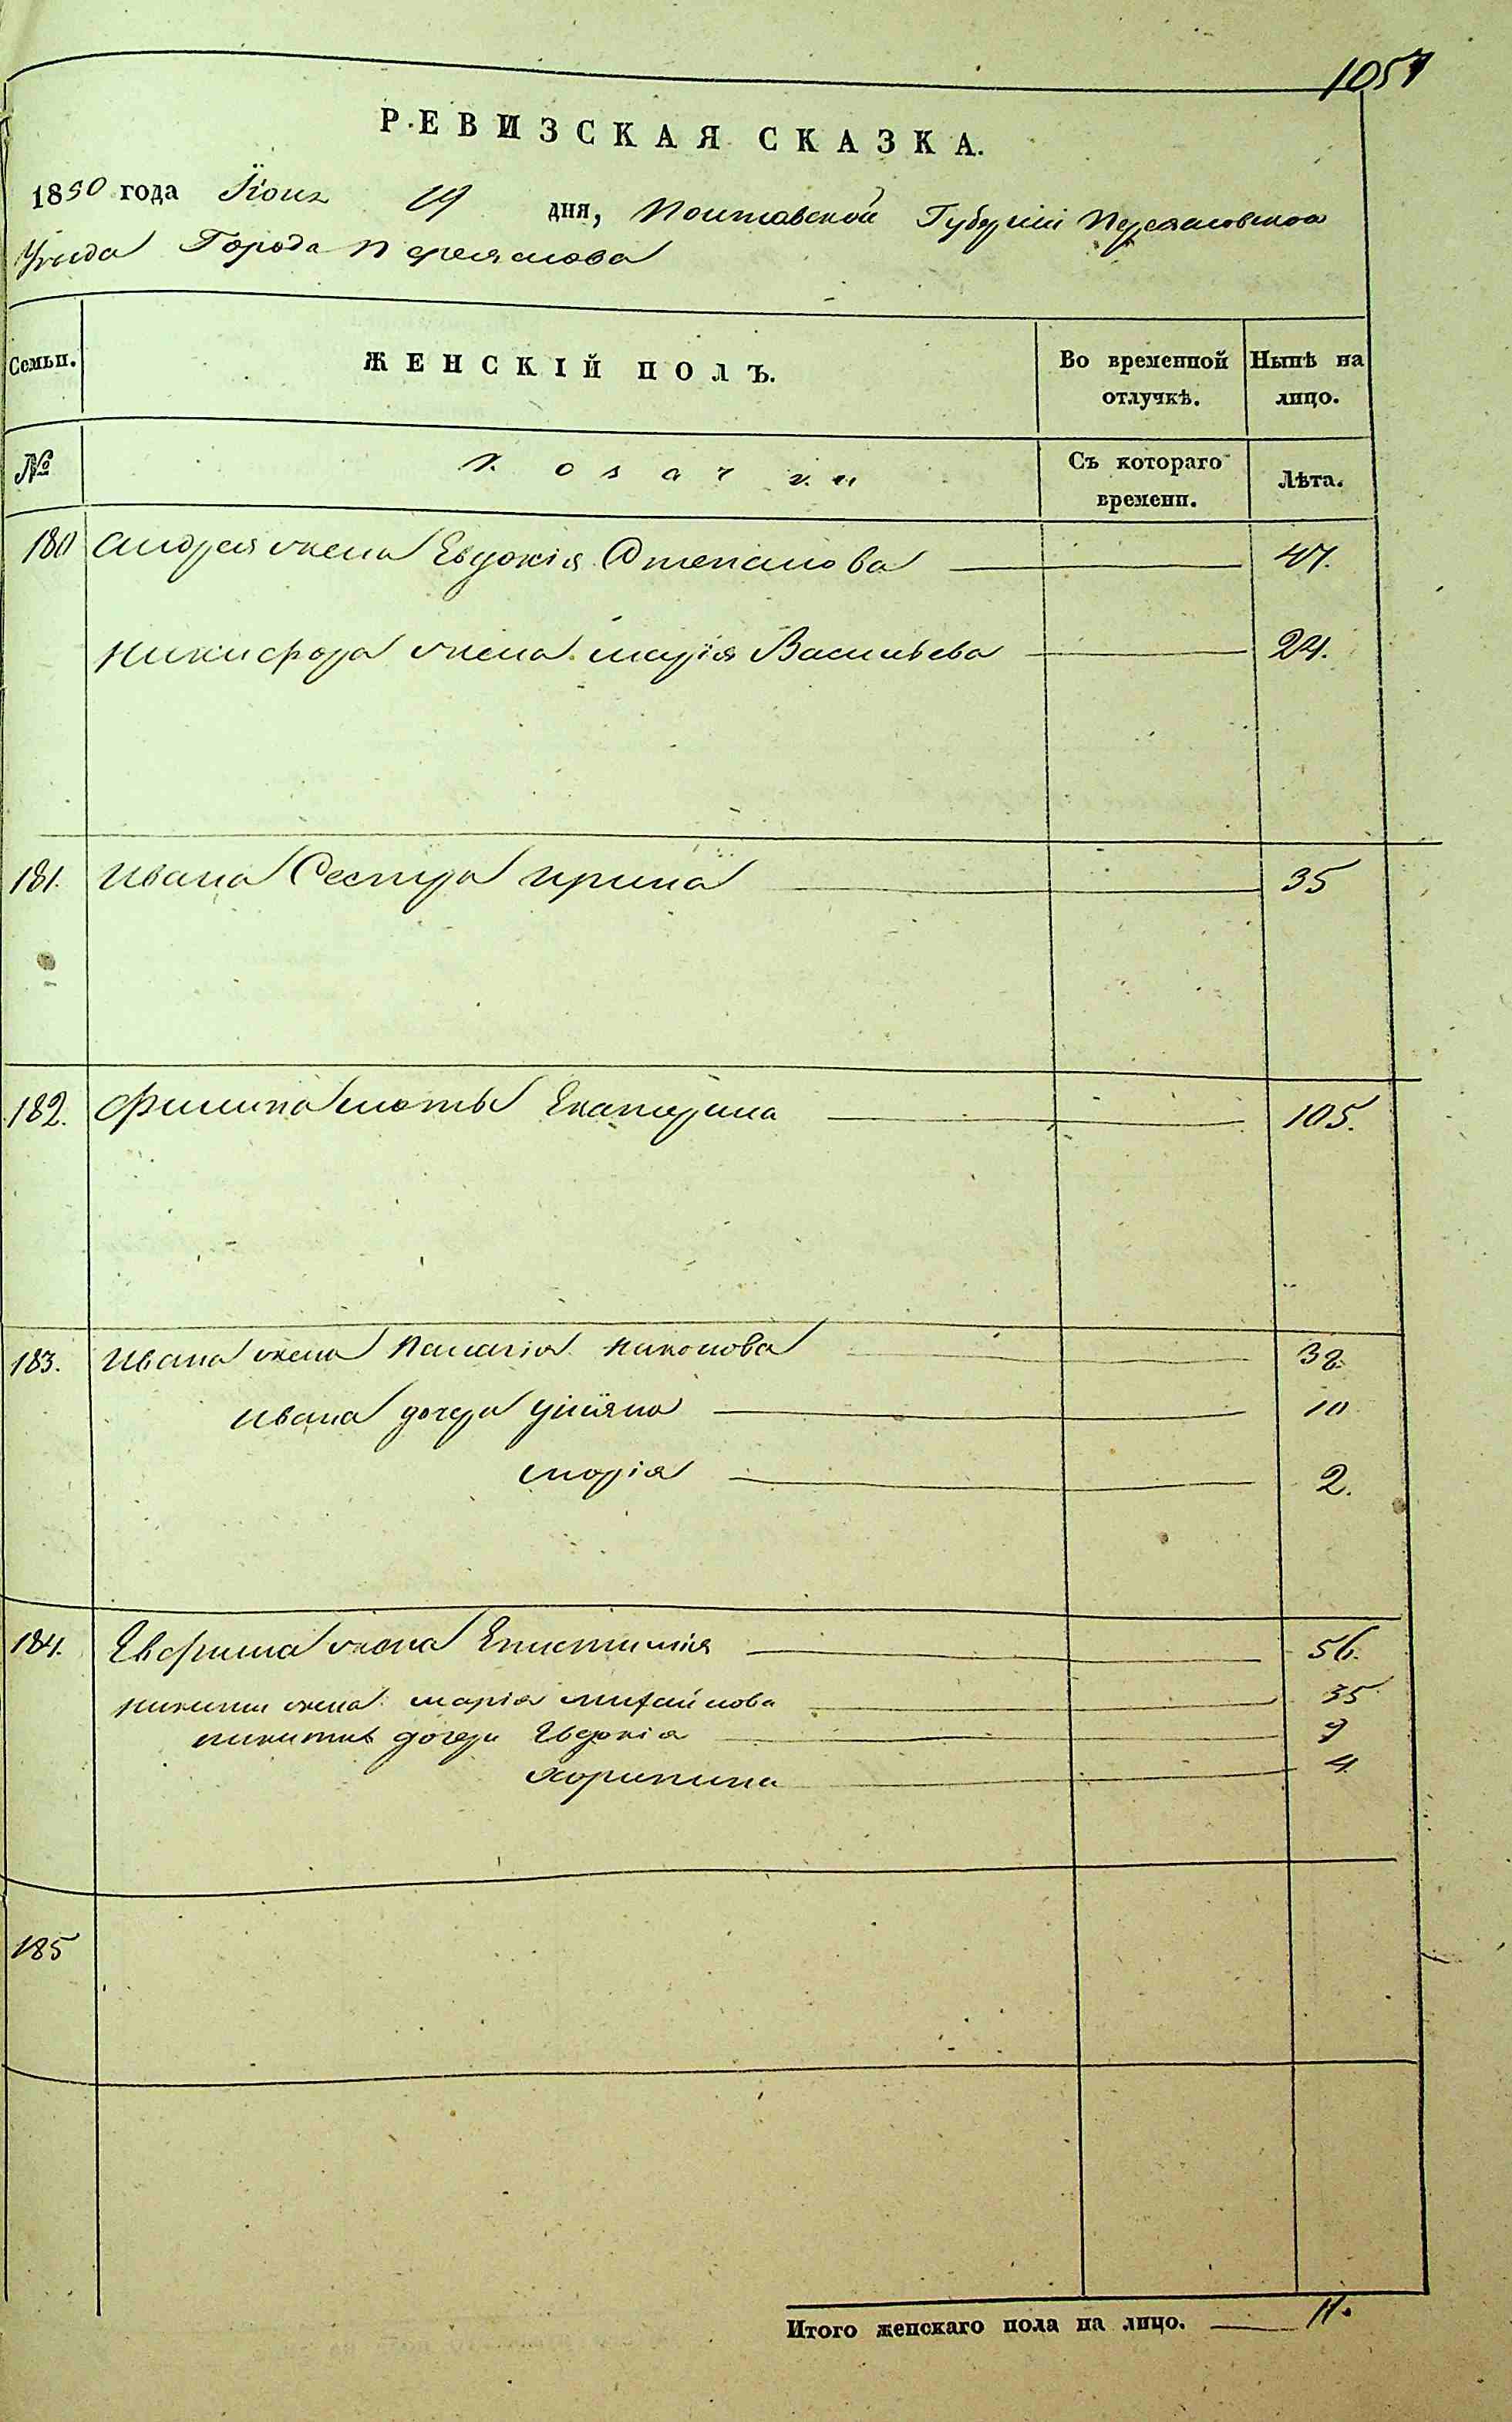 1057
РЕВИЗСКАЯ СКАЗКА.
1850 года Іюня 19 дня, Полтавской Губерніи Переяславского
Уѣзда Города Переяслова
Семьи. ЖЕНСКІЙ ПОЛЪ. Во временной отлучкѣ. Нынѣ на лицо.
№ Козачки Съ котораго времени. Лѣта.
180 Андрея жена Евдокія Степанова 47.
Никифора жена марія Васильева 24.
181. Ивана Сестра ирина 35
182. Филипа мать Екатерина 105.
183. Ивана жена Палагія никонова 38.
ивана дочери уліяна 10
марія 2.
184. Евфима жена Епистимія 56.
никиты жена марія михайлова 35
никиты дочери Евдокія 9
хоритина 4.
185
Итого женскаго пола на лицо. 11.